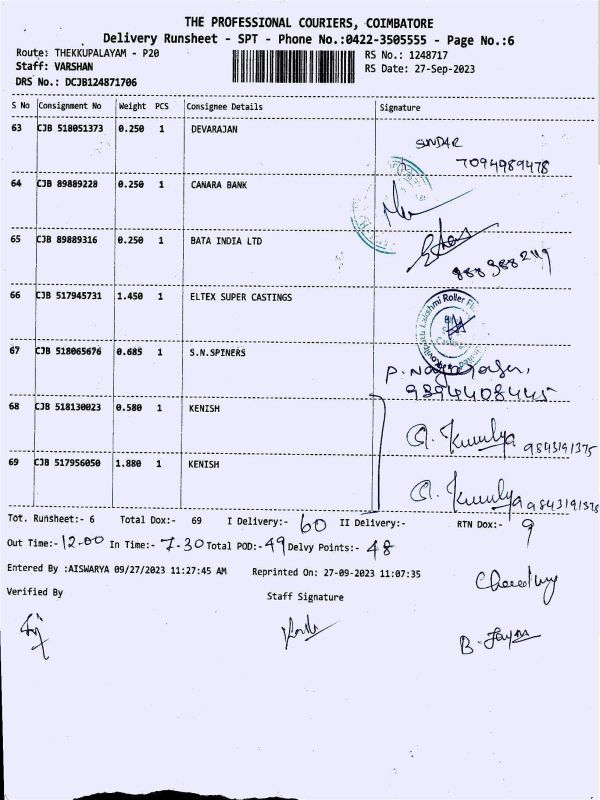 THE PROFESSIONAL COURIERS, COIMBATORE
Delivery Runsheet - SPT - Phone No.:0422-3505555 - Page No.:6
Route: THEKKUPALAYAM - P20 RS No.: 1248717
Staff: VARSHAN RS Date: 27-Sep-2023
DRS No.: DCJB124871706
S No Consignment No Weight PCS Consignee Details Signature
63 CJB 518051373 0.250 1 DEVARAJAN
SUNDAR
7094989478
64 CJB 89889228 0.250 1 CANARA BANK
65 CJB 89889316 0.250 1 BATA INDIA LTD
66 CJB 517945731 1.450 1 ELTEX SUPER CASTINGS
Lakshmi Roller
67 CJB 518065676 0.685 1 S.N.SPINERS
9894408445
68 CJB 518130023 0.580 1 KENISH
9843191375
69 CJB 517956050 1.880 1 KENISH
Tot. Runsheet:- 6 Total Dox:- 69 I Delivery:- 60 II Delivery:- RTN Dox:- 9
Out Time:- 12.00 In Time:- 7.30 Total POD:- 49 Delvy Points:- 48
Entered By :AISWARYA 09/27/2023 11:27:45 AM Reprinted On: 27-09-2023 11:07:35
Verified By Staff Signature